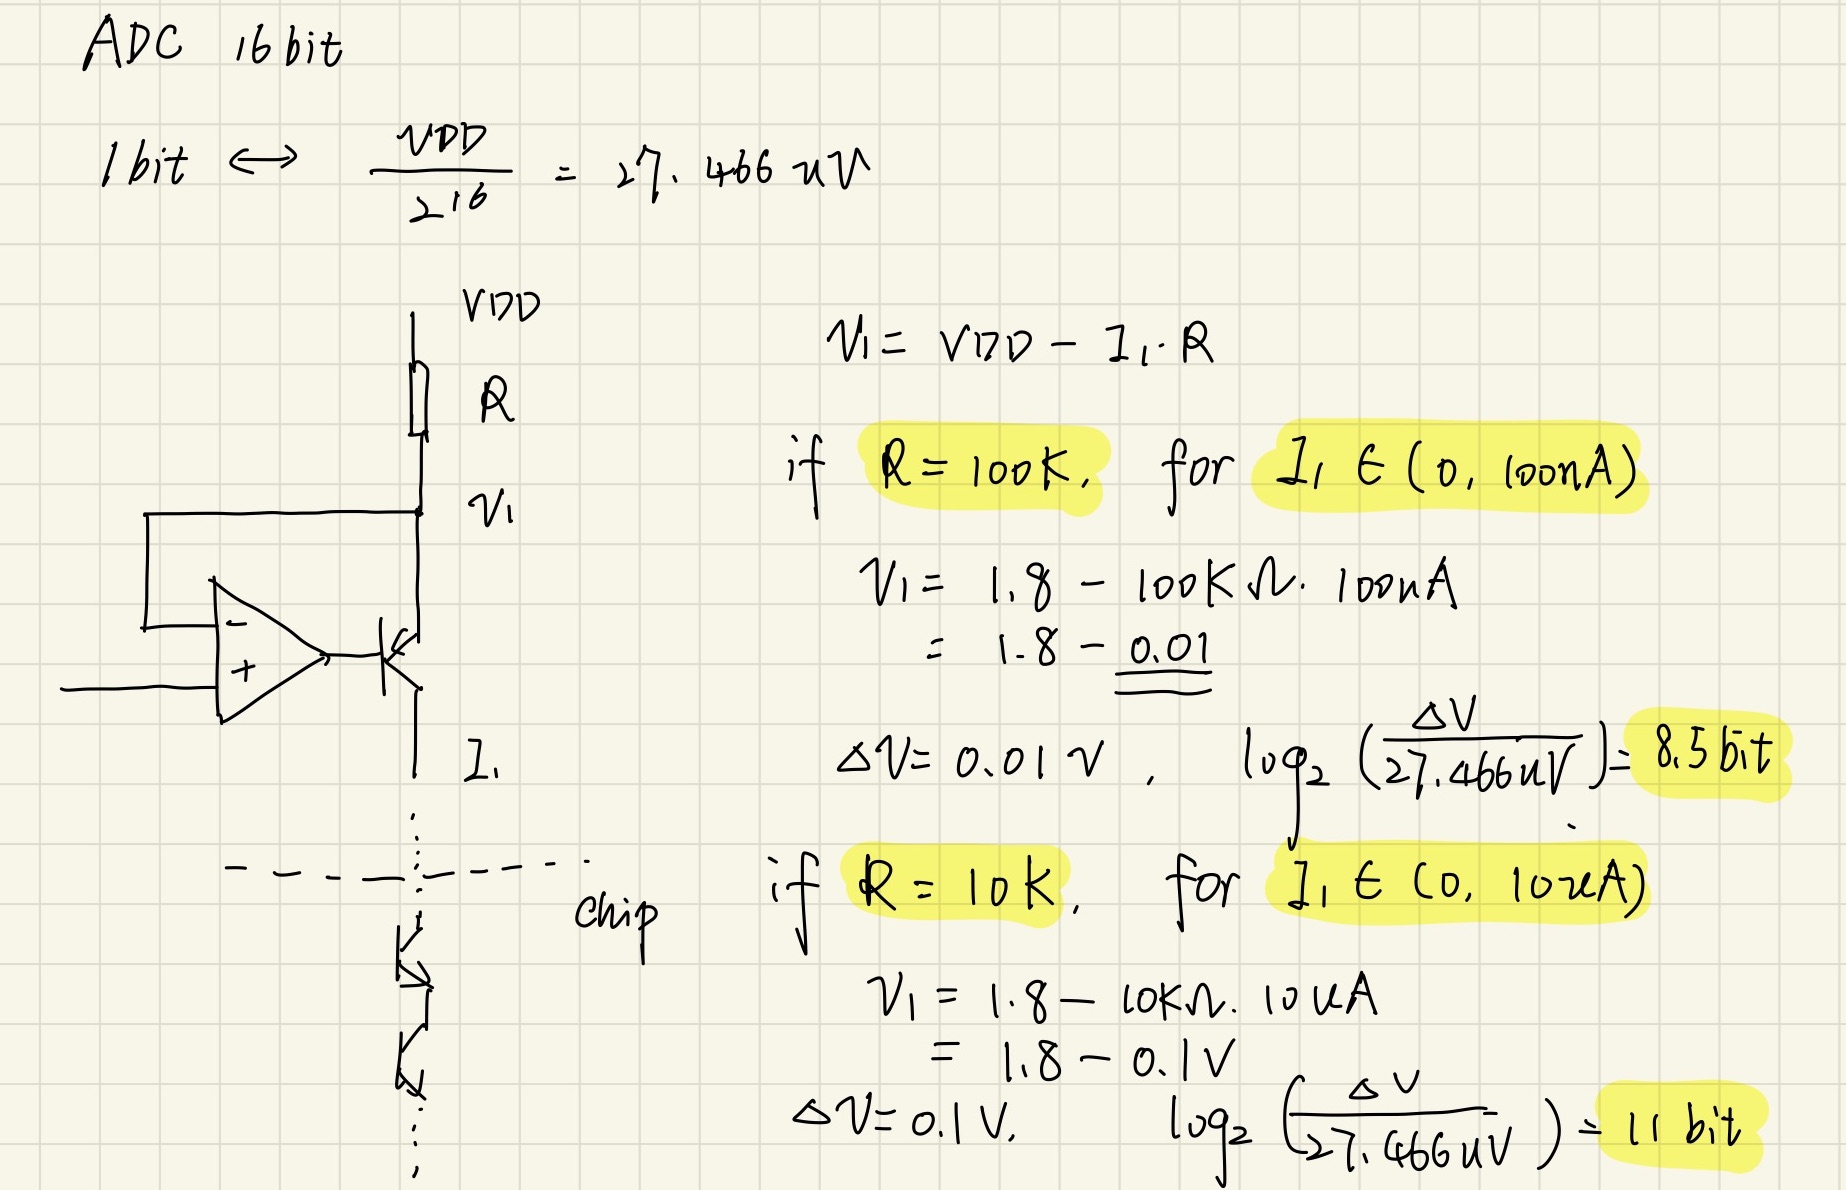 ADC 16bit
1bit ↔ VDD / 2^16 = 27.466 uV
VDD
R
V1
-
+
I1
chip
V1 = VDD - I1 · R
if R = 100K, for I1 ∈ (0, 100nA)
V1 = 1.8 - 100KΩ · 100nA
= 1.8 - 0.01
ΔV = 0.01 V , log2 (ΔV / 27.466uV) = 8.5 bit
if R = 10K, for I1 ∈ (0, 10uA)
V1 = 1.8 - 10KΩ · 10uA
= 1.8 - 0.1V
ΔV = 0.1V, log2 (ΔV / 27.466uV) = 11 bit